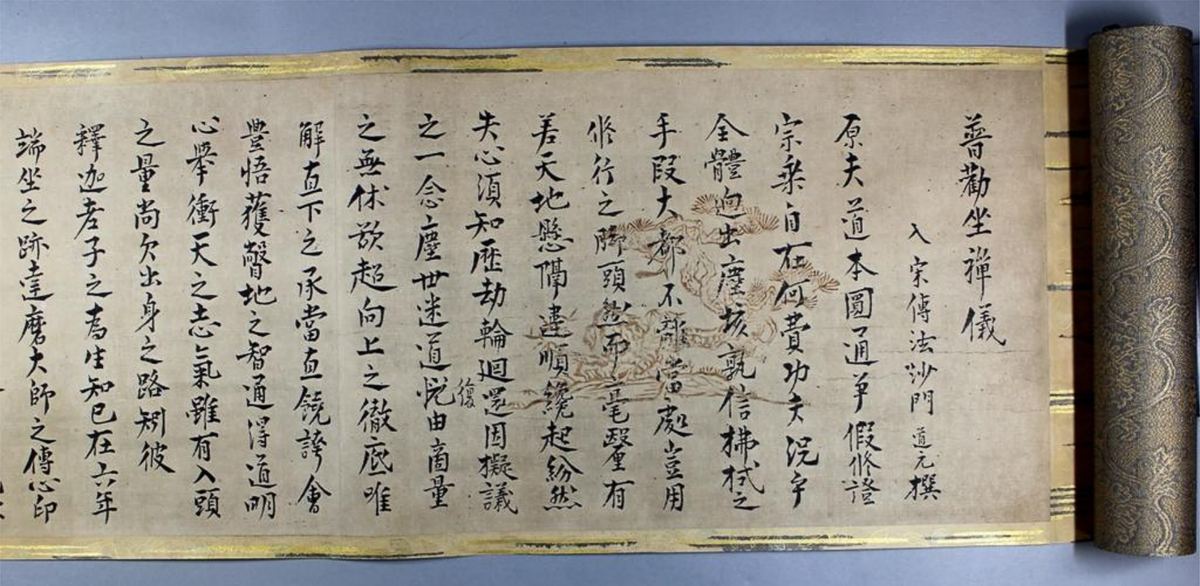 普勸坐禪儀
入宋傳法沙門道元撰
原夫道本圓通爭假修證
宗乘自在何費功夫況乎
全體逈出塵埃孰信拂拭之
手段大都不離當處豈用
修行之脚頭然而毫釐有
差天地懸隔違順纔起紛然
失心須知歷劫輪迴還因擬議
之一念塵世迷道復由商量
之無休欲超向上之徹底唯
解直下之承當直饒誇會
豐悟獲瞥地之智通得道明
心擧衝天之志氣雖有入頭
之量尚欠出身之路矧彼
釋迦老子之爲生知已在六年
端坐之跡達磨大師之傳心印